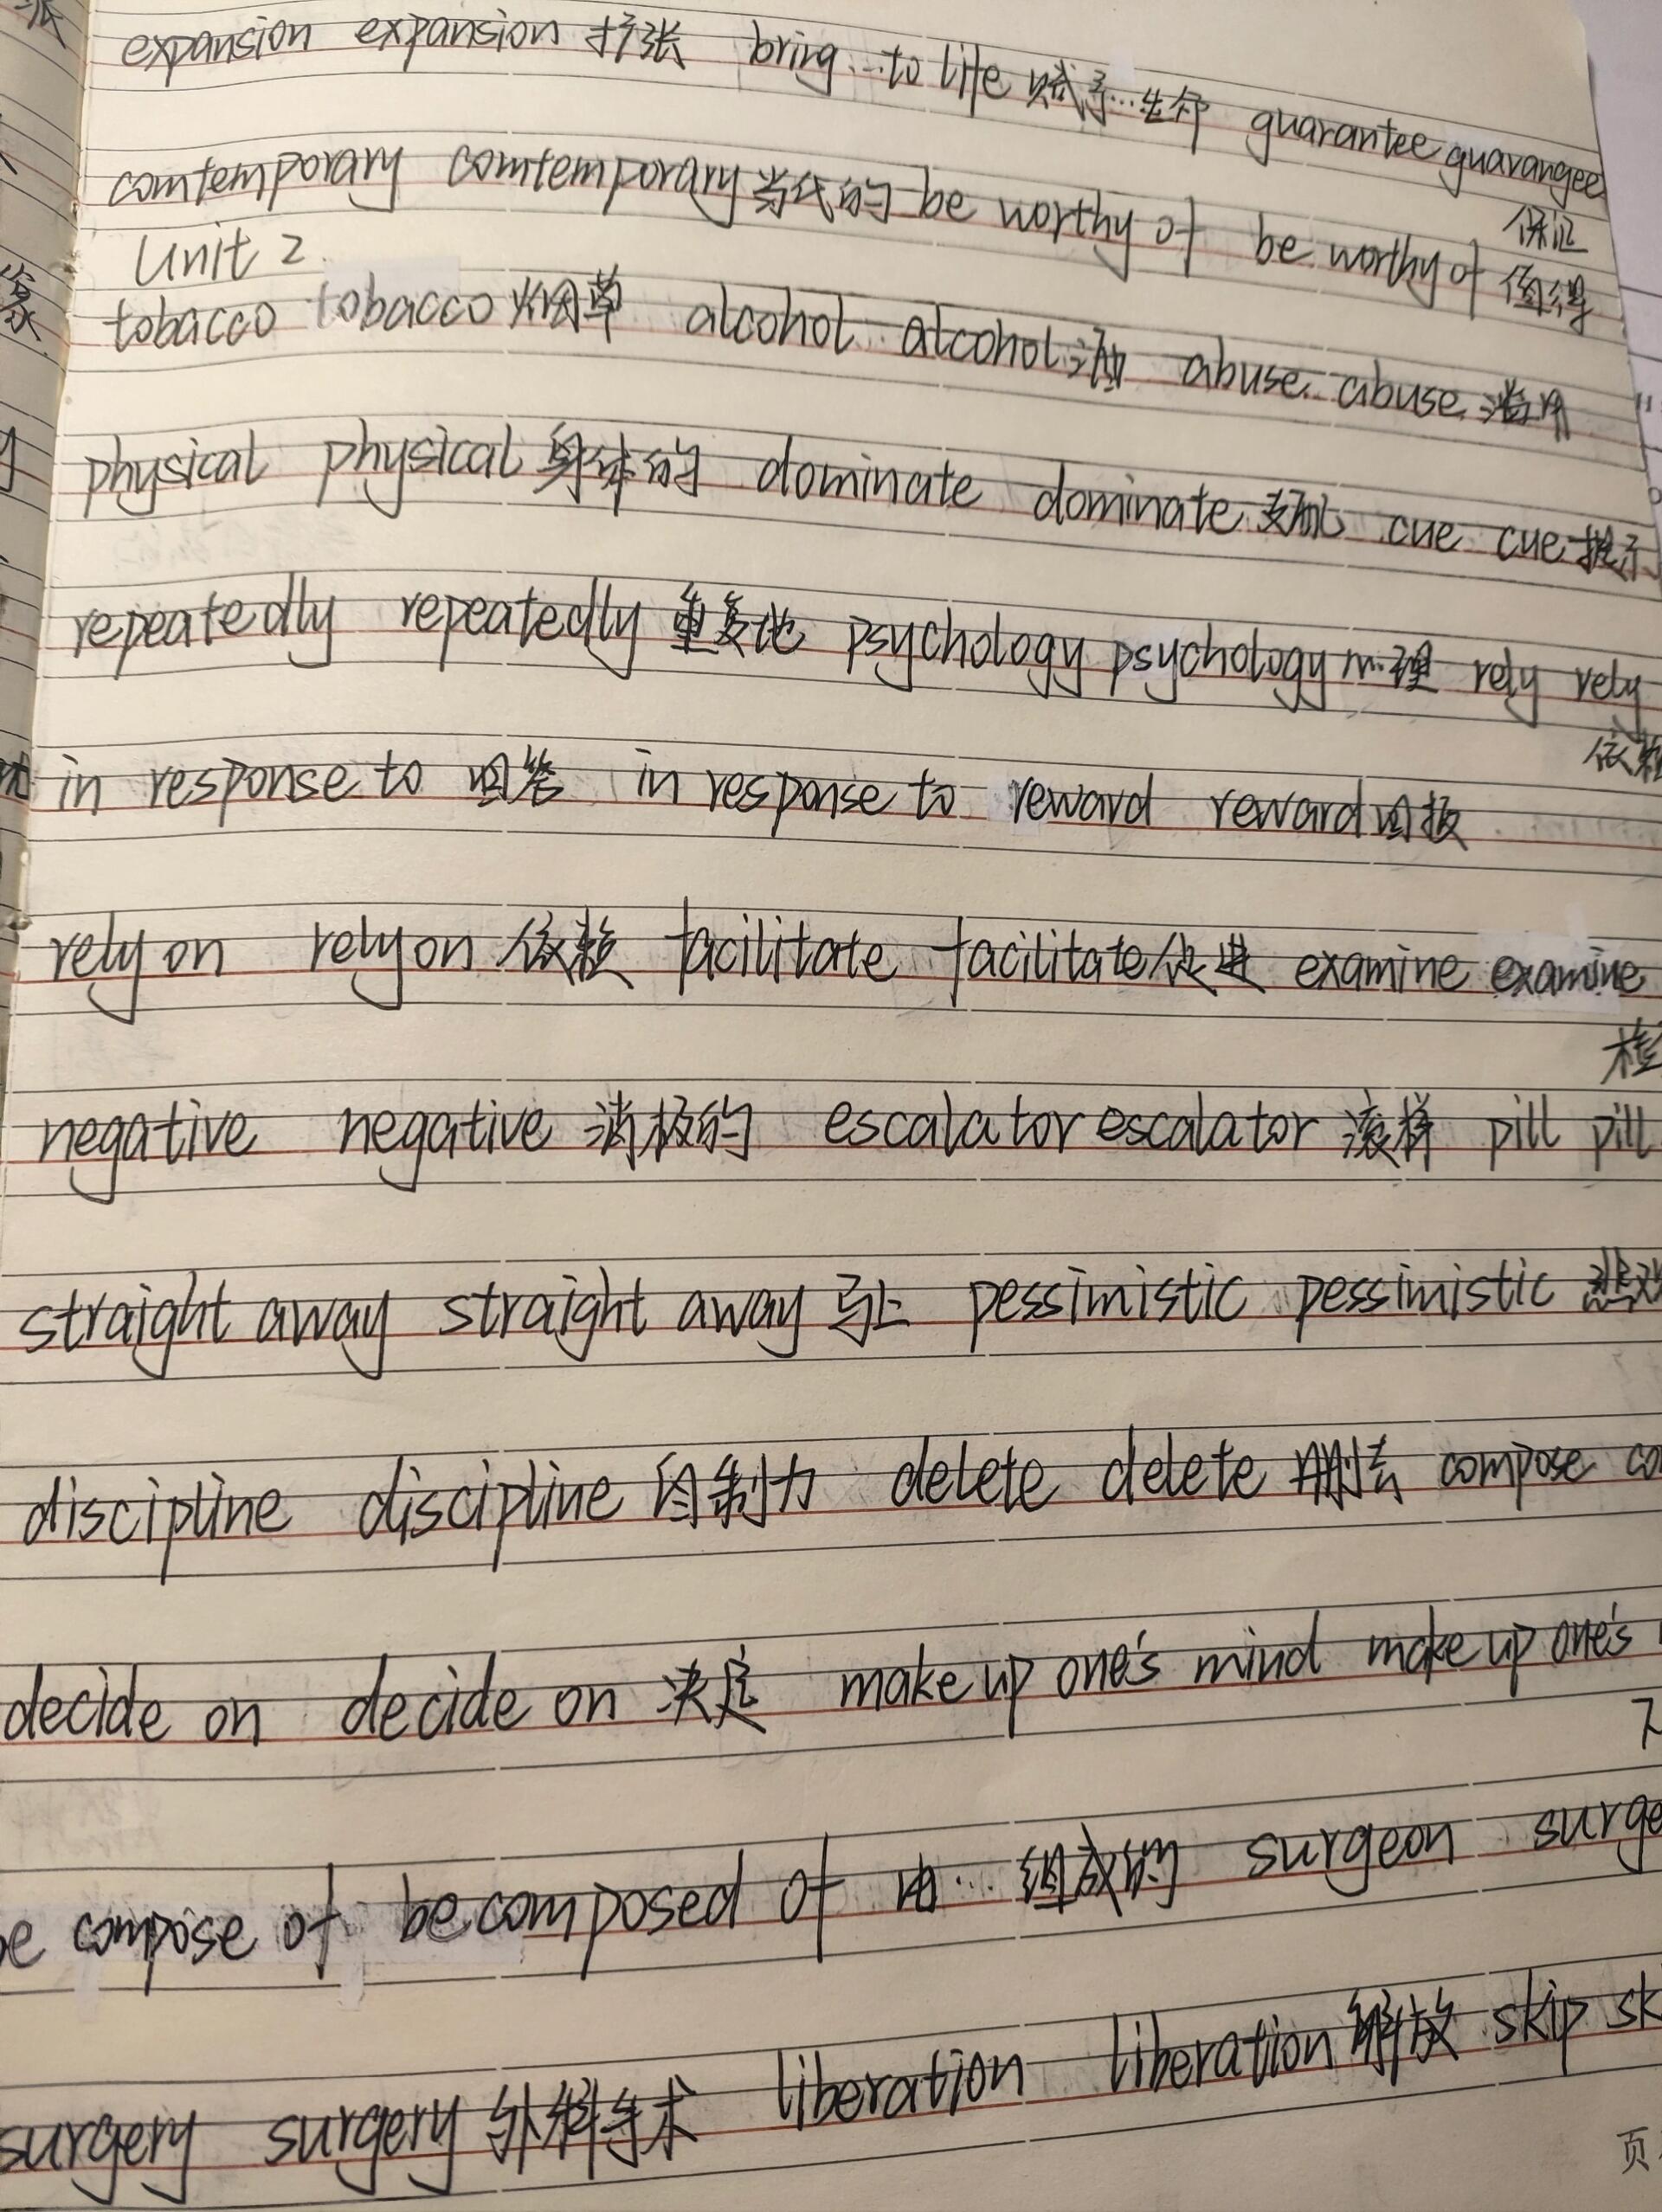 expansion expansion 扩张 bring...to life 赋予...生命 guarantee guarangee
保证
comtemporary comtemporary 当代的 be worthy of be worthy of 值得
Unit 2
tobacco tobacco 烟草 alcohol alcohol 酒 abuse abuse 滥用
physical physical 身体的 dominate dominate 支配 cue cue 提示
repeatedly repeatedly 重复地 psychology psychology 心理 rely rely
依赖
in response to 回答 in response to reward reward 回报
rely on rely on 依赖 facilitate facilitate 促进 examine examine
检
negative negative 消极的 escalator escalator 滚梯 pill pill
straight away straight away 马上 pessimistic pessimistic 悲观
discipline discipline 自制力 delete delete 删去 compose co
decide on decide on 决定 make up one's mind make up one's
compose of be composed of 由... 组成的 surgeon surge
surgery surgery 外科手术 liberation liberation 解放 skip sk
页